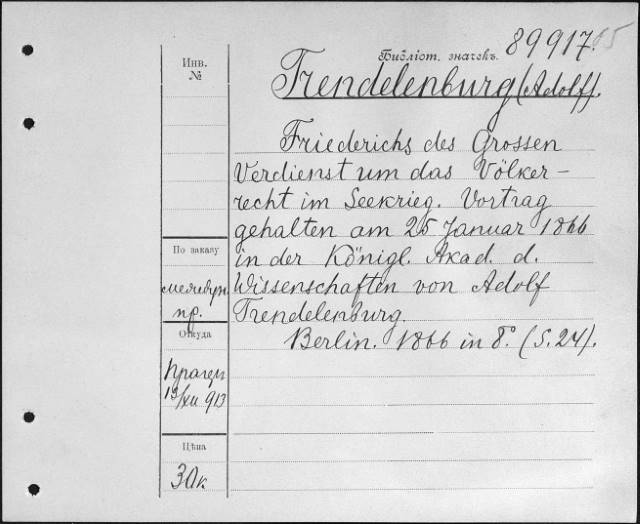 Библіот. значекъ. 89917
Инв.
№
Trendelenburg (Adolf).
Friederichs des Grossen
Verdienst um das Völker-
recht im Seekrieg. Vortrag
gehalten am 25 Januar 1866
По заказу
in der Königl. Akad. d.
Wissenschaften von Adolf
пр.
Trendelenburg.
Откуда
Berlin. 1866 in 8º. (S. 24).
Прагеръ
13/XII 913
Цѣна
30к